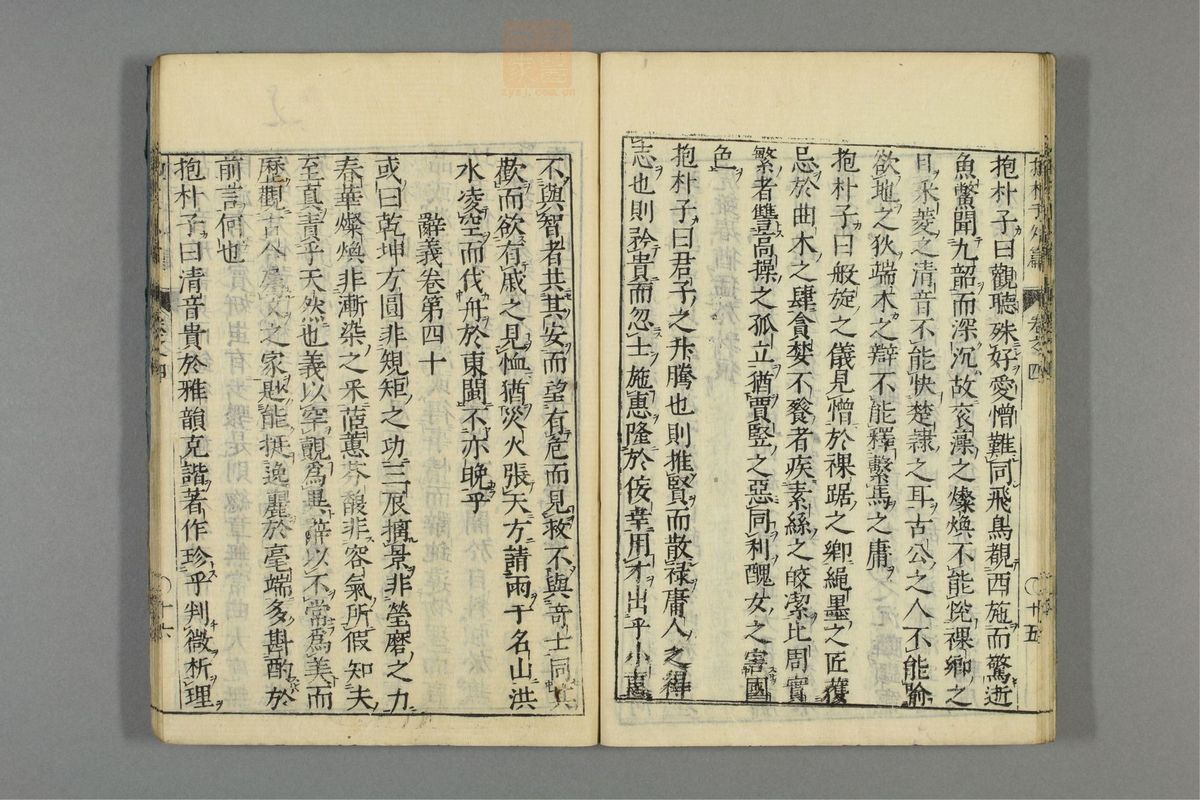 抱朴子曰觀聽殊好愛憎難同飛鳥覩西施而驚逝
魚鱉聞九韶而深沉故衮藻之燦煥不能悅裸鄉之
目采菱之清音不能快楚隷之耳古公之仁不能喻
欲地之狄端木之辯不能釋繫馬之庸
抱朴子曰般旋之儀見憎於裸踞之鄉繩墨之匠獲
忌於曲木之肆貪婪不餮者疾素絲之皎潔比周實
繁者讐高操之孤立猶賈竪之惡同利醜女之害國
色
抱朴子曰君子之升騰也則推賢而散祿庸人之得
志也則矜貴而忽士施惠隆於佞幸用才出乎小惠
不與智者共其安而望有危而見救不與奇士同其
歡而欲有戚之見恤猶災火張天方請雨于名山洪
水凌空而伐舟於東閩不亦晚乎
辭義卷第四十
或曰乾坤方圓非規矩之功三辰摛景非瑩磨之力
春華燦煥非漸染之采茝蕙芬馥非容氣所假知夫
至真貴乎天然也義以罕覿爲異辭以不常爲美而
歷觀古今屬文之家尠能挺逸麗於毫端多斟酌於
前言何也
抱朴子曰清音貴於雅韻克諧著作珍乎判微析理
抱朴子外篇
卷之四
十五
卷之四
十六